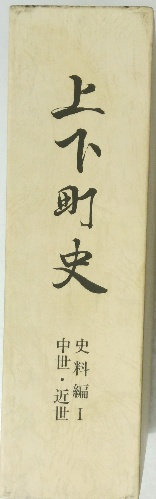 上下町史
史料編I
中世・近世